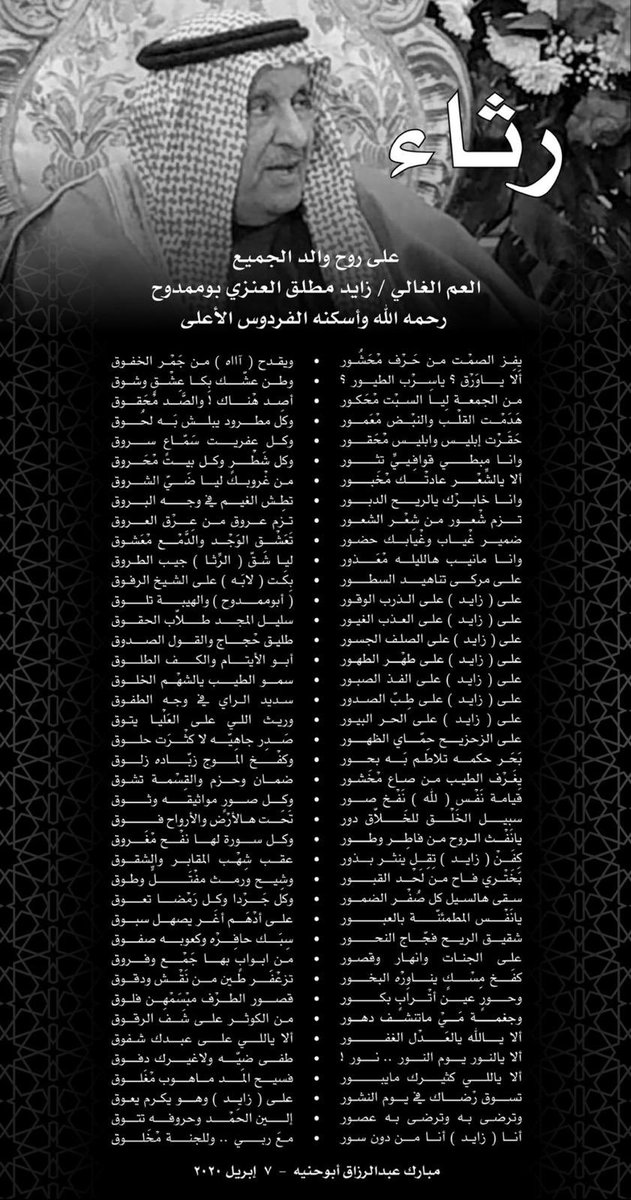 رثاء
على روح والد الجميع
العم الغالي / زايد مطلق العنزي بوممدوح
رحمه الله وأسكنه الفردوس الأعلى
يفز الصمت من حرف محشور • ويقدح ( آااه ) من جمر الخفوق
ألا ياورق ؟ ياسرب الطيور ؟ • وطن عشك بكا عشق وشوق
من الجمعة ليا السبت محكور • أصد هناك أ والصد محقوق
هدمت القلب والنبض معمور • وكل مطرود يبلش به لحوق
حقرت إبليس وابليس محقور • وكل عفريت سماع سروق
وانا مبطي قوافيي تثور • وكل شطر وكل بيت محروق
ألا يالشعر عادتك مخبور • من غروبك ليا ضي الشروق
وانا خابرك يالريح الدبور • تطش الغيم في وجه البروق
تزم شعور من شعر الشعور • تزم عروق من عزق العروق
ضمير غياب وغيابك حضور • تعشق الوجد والدمع معشوق
وانا مانيب هالليله معذور • ليا شق ( الرثا ) جيب الطروق
على مركى تناهيد السطور • بكت ( لابه ) على الشيخ الرفوق
على ( زايد ) على الذرب الوقور • ( أبوممدوح ) والهيبة تلوق
على ( زايد ) على العذب الغيور • سليل المجد طلاب الحقوق
على ( زايد ) على الصلف الجسور • طليق حجاج والقول الصدوق
على ( زايد ) على طهر الطهور • أبو الأيتام والكف الطلوق
على ( زايد ) على الفذ الصبور • سمو الطيب يالشهم الخلوق
على ( زايد ) على طب الصدور • سديد الراي في وجه الطفوق
على ( زايد ) على الحر البيور • وريث اللي على العليا يتوق
على الزحزيح حماي الظهور • صدر جاهيه لا كثرت حلوق
بحر حكمه تلاطم به بحور • وكفخ الموج زياده زلوق
يغرف الطيب من صاع مخشور • ضمان وحزم والقسمة تشوق
قيامة نفس ( لله ) نفخ صور • وكل صور مواثيقه وثوق
سبيل الخلق للخلاق دور • تحت هالأرض والأرواح فوق
يانفث الروح من فاطر وطور • وكل سورة لها نفح مغروق
كفن ( زايد ) تقل ينثر بذور • عقب شهب المقابر والشقوق
بختري فاح من لحد القبور • وشيح ورمث مفتل وطوق
سقى هالسيل كل صفر الضمور • وكل جردا وكل رمضا تعوق
يانفس المطمئنة بالعبور • على أدهم أغر يصهل سبوق
شقيق الريح فجاج النحور • سبك حافره وكعوبه صفوق
على الجنات وانهار وقصور • من ابواب بها جمع وفروق
كفخ مسك يناوره البخور • تزعفر طين من نقش ودقوق
وحور عين أتراب بكور • قصور الطرف مبسمهن فلوق
وجغمة مي ماتنشف دهور • من الكوثر على شف الرقوق
ألا يالله يالعدل الغفور • ألا ياللي على عبدك شفوق
ألا يالنور يوم النور .. نور ! • طفى ضيه ولاغيرك دفوق
ألا ياللي كثيرك مايبور • فسيح المد ماهوب مغلوق
تسوق رضاك في يوم النشور • على ( زايد ) وهو يكرم يعوق
وترضى به وترضى به عصور • إلين الحمد وحروفه تتوق
أنا ( زايد ) أنا من دون سور • مع ربي .. وللجنة مخلوق
مبارك عبدالرزاق أبوحنيه - ٧ إبريل ٢٠٢٠